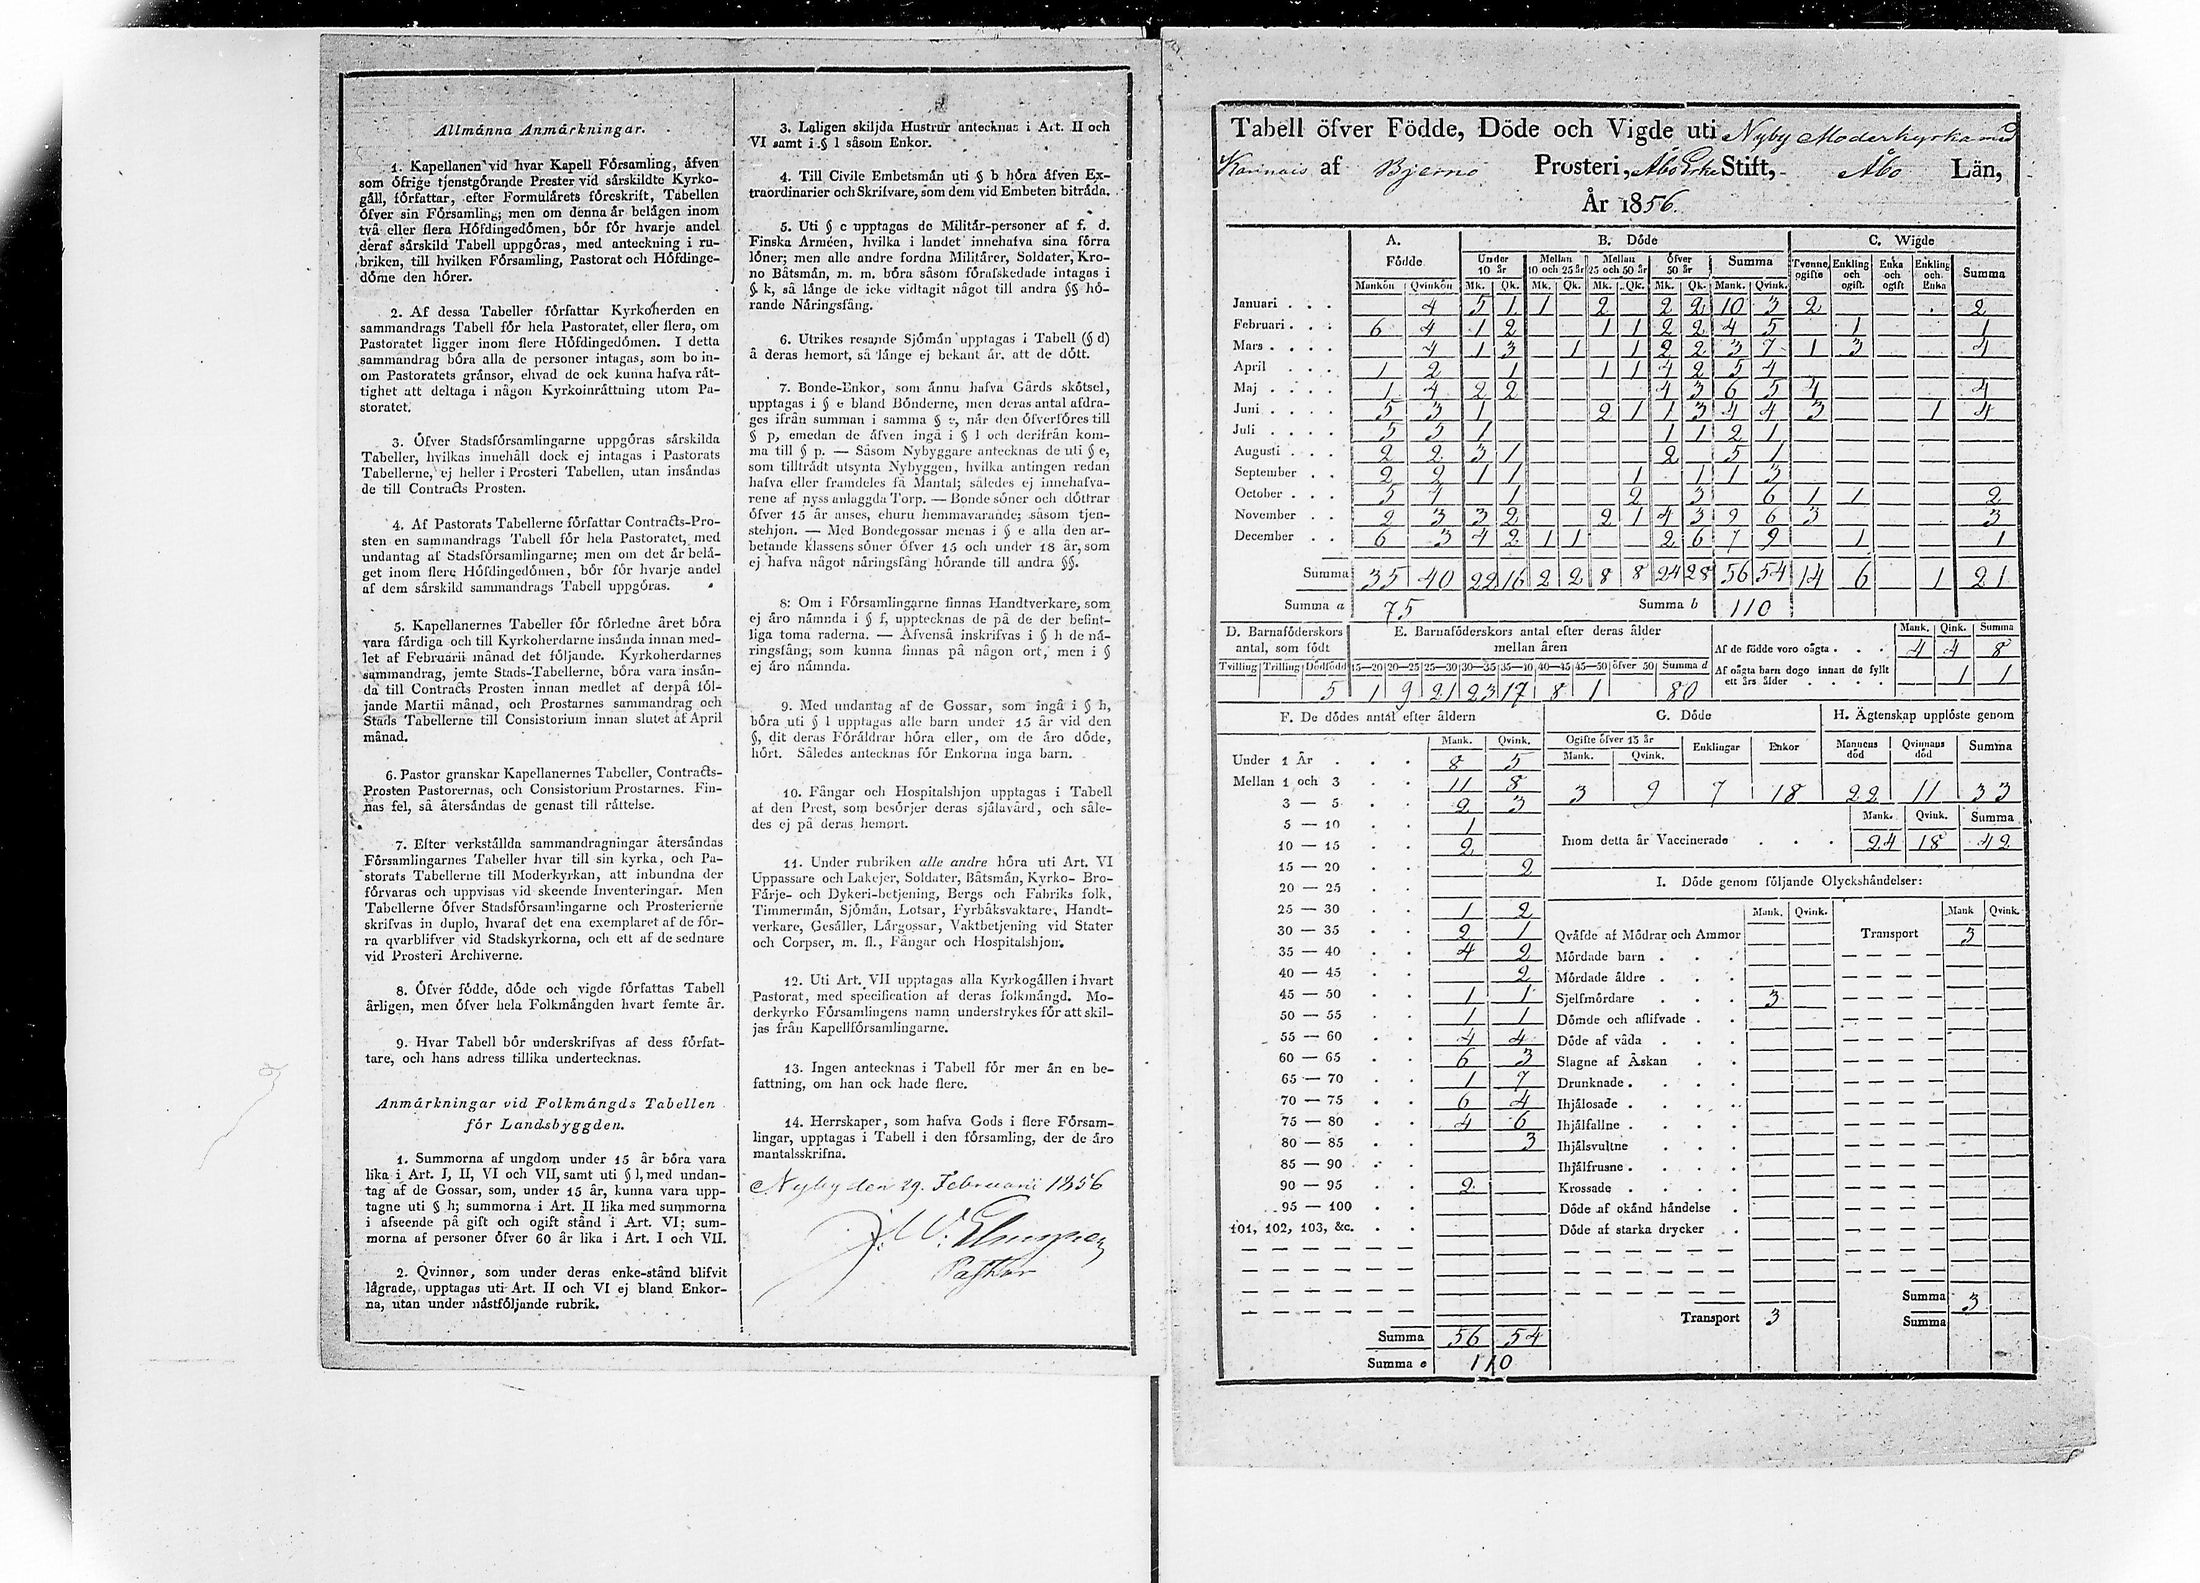 Allmänna Anmärkningar.
1. Kapellanen vid hvar Kapell Församling, äfven
som öfrige tjenstgörande Prester vid särskildte Kyrko-
gäll, författar, efter Formulärets föreskrift, Tabellen
öfver sin Församling; men om denna är belägen inom
två eller flera Höfdingedömen, bör för hvarje andel
deraf särskild Tabell uppgöras, med anteckning i ru-
briken, till hvilken Församling, Pastorat och Höfdinge-
döme den hörer.
2. Af dessa Tabeller författar Kyrkoherden en
sammandrags Tabell för hela Pastoratet, eller flera, om
Pastoratet ligger inom flere Höfdingedömen. I detta
sammandrag böra alla de personer intagas, som bo in-
om Pastoratets gränsor, ehvad de ock kunna hafva rät-
tighet att deltaga i någon Kyrkoinrättning utom Pa-
storatet.
3. Öfver Stadsförsamlingarne uppgöras särskilda
Tabeller, hvilkas innehåll dock ej intagas i Pastorats
Tabellerne, ej heller i Prosteri Tabellen, utan insändas
de till Contracts Prosten.
4. Af Pastorats Tabellerne författar Contracts-Pro-
sten en sammandrags Tabell för hela Pastoratet, med
undantag af Stadsförsamlingarne; men om det är belä-
get inom flere Höfdingedömen, bör för hvarje andel
af dem särskild sammandrags Tabell uppgöras.
5. Kapellanernes Tabeller för förledne året böra
vara färdiga och till Kyrkoherdarne insända innan med-
let af Februarii månad det följande. Kyrkoherdarnes
sammandrag, jemte Stads-Tabellerne, böra vara insän-
da till Contracts Prosten innan medlet af derpå föl-
jande Martii månad, och Prostarnes sammandrag och
Stads Tabellerne till Consistorium innan slutet af April
månad.
6. Pastor granskar Kapellanernes Tabeller, Contracts-
Prosten Pastorernas, och Consistorium Prostarnes. Fin-
nas fel, så återsändas de genast till rättelse.
7. Efter verkställda sammandragningar återsändas
Församlingarnes Tabeller hvar till sin kyrka, och Pa-
storats Tabellerne till Moderkyrkan, att inbundna der
förvaras och uppvisas vid skeende Inventeringar. Men
Tabellerne öfver Stadsförsamlingarne och Prosterierne
skrifvas in duplo, hvaraf det ena exemplaret af de för-
ra qvarblifver vid Stadskyrkorna, och ett af de sednare
vid Prosteri Archiverne.
8. Öfver födde, döde och vigde författas Tabell
årligen, men öfver hela Folkmängden hvart femte år.
9. Hvar Tabell bör underskrifvas af dess förfat-
tare, och hans adress tillika undertecknas.
Anmärkningar vid Folkmängds Tabellen
för Landsbyggden.
1. Summorna af ungdom under 15 år böra vara
lika i Art. I, II, VI och VII, samt uti § l, med undan-
tag af de Gossar, som, under 15 år, kunna vara upp-
tagne uti § h; summorna i Art. II lika med summorna
i afseende på gift och ogift stånd i Art. VI; sum-
morna af personer öfver 60 år lika i Art. I och VII.
2. Qvinnor, som under deras enke-stånd blifvit
lägrade, upptagas uti Art. II och VI ej bland Enkor-
na, utan under nästföljande rubrik.
3. Laligen skiljda Hustrur antecknas i Art. II och
VI samt i § l såsom Enkor.
4. Till Civile Embetsmän uti § b höra äfven Ex-
traordinarier och Skrifvare, som dem vid Embeten biträda.
5. Uti § c upptagas de Militär-personer af f. d.
Finska Arméen, hvilka i landet innehafva sina förra
löner; men alle andre fordna Militärer, Soldater, Kro-
no Båtsmän, m. m. böra såsom förafskedade intagas i
§ k, så länge de icke vidtagit något till andra §§ hö-
rande Näringsfång.
6. Utrikes resande Sjömän upptagas i Tabell (§ d)
å deras hemort, så länge ej bekant är, att de dött.
7. Bonde-Enkor, som ännu hafva Gårds skötsel,
upptagas i § e bland Bönderne, men deras antal afdra-
ges ifrån summan i samma § e, når den öfverföres till
§ p, emedan de äfven ingå i § l och derifrån kom-
ma till § p. — Såsom Nybyggare antecknas de uti § e,
som tillträdt utsynta Nybyggen, hvilka antingen redan
hafva eller framdeles få Mantal; således ej innehafva-
rene af nyss anlaggda Torp. — Bonde söner och döttrar
öfver 15 år anses, ehuru hemmavarande, såsom tjen-
stehjon. — Med Bondegossar menas i § e alla den ar-
betande klassens söner öfver 15 och under 18 år, som
ej hafva något näringsfång hörande till andra §§.
8. Om i Församlingarne finnas Handtverkare, som
ej äro nämnda i § f, upptecknas de på de der befint-
liga toma raderna. — Äfvenså inskrifvas i § h de nä-
ringsfång, som kunna finnas på någon ort, men i §
ej äro nämnda.
9. Med undantag af de Gossar, som ingå i § h,
böra uti § l upptagas alle barn under 15 år vid den
§, dit deras Föräldrar höra eller, om de äro döde,
hört. Således antecknas för Enkorna inga barn.
10. Fångar och Hospitalshjon upptagas i Tabell
af den Prest, som besörjer deras själavård, och såle-
des ej på deras hemort.
11. Under rubriken alle andre höra uti Art. VI
Uppassare och Lakejer, Soldater, Båtsmän, Kyrko- Bro-
Färje- och Dykeri-betjening, Bergs och Fabriks folk,
Timmermän, Sjömän, Lotsar, Fyrbåksvaktare, Handt-
verkare, Gesäller, Lärgossar, Vaktbetjening vid Stater
och Corpser, m. fl., Fångar och Hospitalshjon.
12. Uti Art. VII upptagas alla Kyrkogällen i hvart
Pastorat, med specification af deras folkmängd. Mo-
derkyrko Församlingens namn understrykes för att skil-
jas från Kapellförsamlingarne.
13. Ingen antecknas i Tabell för mer än en be-
fattning, om han ock hade flere.
14. Herrskaper, som hafva Gods i flere Försam-
lingar, upptagas i Tabell i den församling, der de äro
mantalsskrifna.
Nyby den 29. Februarii 1856
Pastor
Tabell öfver Födde, Döde och Vigde uti Nyby Moderkyrka med
Kannais af Bjerno Prosteri, Åbo Erke Stift, Åbo Län,
År 1856.
A. Födde B. Döde C. Wigde
Under 10 år Mellan 10 och 25 år Mellan 25 och 50 år Öfver 50 år Summa Tvenne ogifte Enkling och ogift. Enka och ogift Enkling och Enka Summa
Mankön Qvinkön Mk. Qk. Mk. Qk. Mk. Qk. Mk. Qk. Mank. Qvink.
Januari 4 5 1 1 2 2 2 10 3 2 2
Februari 6 4 1 2 1 1 2 2 4 5 1 1
Mars 4 1 3 1 1 2 2 3 7 1 3 4
April 1 2 1 1 1 4 2 5 4
Maj 1 4 2 2 4 3 6 5 4 4
Juni 5 3 1 2 1 1 3 4 4 3 1 4
Juli 5 3 1 1 1 2 1
Augusti 2 2 3 1 2 5 1
September 2 2 1 1 1 1 1 3
October 5 4 1 2 3 6 1 1 2
November 2 3 3 2 2 1 4 3 9 6 3 3
December 6 3 4 2 1 1 2 6 7 9 1 1
Summa 35 40 22 16 2 2 8 8 24 28 56 54 14 6 1 21
Summa a 75 Summa b 110
D. Barnaföderskors antal, som födt
Tvilling Trilling Dödfödd
5
E. Barnaföderskors antal efter deras ålder mellan åren
15—20 20—25 25—30 30—35 35—40 40—45 45—50 öfver 50 Summa d
1 9 21 23 17 8 1 80
Mank. Qink. Summa
Af de födde voro oägta 4 4 8
Af oägta barn dogo innan de fyllt ett års ålder 1 1
F. De dödes antal efter åldern
Mank. Qvink.
Under 1 År 8 5
Mellan 1 och 3 11 8
3 — 5 2 3
5 — 10 1
10 — 15 2
15 — 20 2
20 — 25
25 — 30 1 2
30 — 35 2 1
35 — 40 4 2
40 — 45 2
45 — 50 1 1
50 — 55 1 1
55 — 60 4 4
60 — 65 6 3
65 — 70 1 7
70 — 75 6 4
75 — 80 4 6
80 — 85 3
85 — 90
90 — 95 2
95 — 100
101, 102, 103, &c.
Summa 56 54
Summa e 110
G. Döde
Ogifte öfver 15 år Enklingar Enkor
Mank. Qvink.
3 9 7 18
H. Ägtenskap upplöste genom
Mannens död Qvinnans död Summa
22 11 33
Mank. Qvink. Summa
Inom detta år Vaccinerade 24 18 42
I. Döde genom följande Olyckshändelser:
Mank. Qvink. Mank Qvink.
Qväfde af Mödrar och Ammor Transport 3
Mördade barn
Mördade äldre
Sjelfmördare 3
Dömde och aflifvade
Döde af våda
Slagne af Åskan
Drunknade
Ihjälosade
Ihjälfallne
Ihjälsvultne
Ihjälfrusne
Krossade
Döde af okänd händelse
Döde af starka drycker
Transport 3
Summa 3
Summa